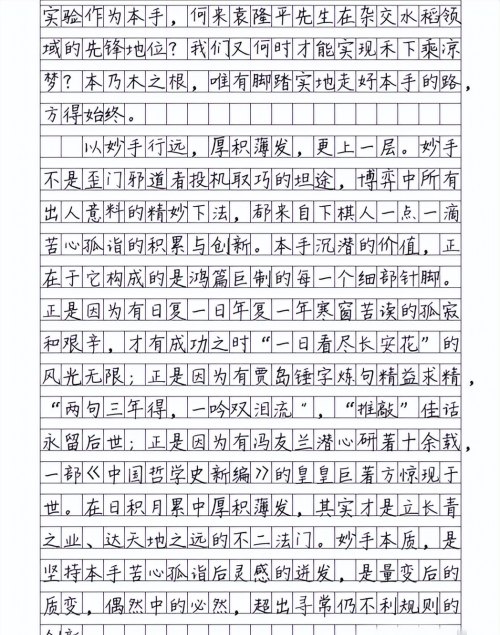 实验作为本手，何来袁隆平先生在杂交水稻领
域的先锋地位？我们又何时才能实现禾下乘凉
梦？本乃木之根，唯有脚踏实地走好本手的路，
方得始终。
以妙手行远，厚积薄发，更上一层。妙手
不是歪门邪道者投机取巧的坦途，博弈中所有
出人意料的精妙下法，都来自下棋人一点一滴
苦心孤诣的积累与创新。本手沉潜的价值，正
在于它构成的是鸿篇巨制的每一个细部针脚。
正是因为有日复一日年复一年寒窗苦读的孤寂
和艰辛，才有成功之时“一日看尽长安花”的
风光无限；正是因为有贾岛锤字炼句精益求精，
“两句三年得，一吟双泪流”，“推敲”佳话
永留后世；正是因为有冯友兰潜心研著十余载，
一部《中国哲学史新编》的皇皇巨著方惊现于
世。在日积月累中厚积薄发，其实才是立长青
之业、达天地之远的不二法门。妙手本质，是
坚持本手苦心孤诣后灵感的迸发，是量变后的
质变，偶然中的必然，超出寻常仍不利规则的